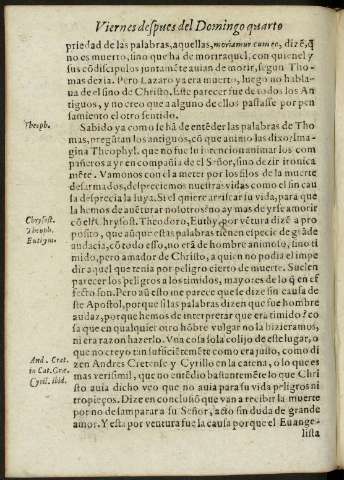 Viernes despues del Domingo quarto
priedad de las palabras, aquellas, moriamur cum eo, dizẽ, q̃
no es muerto, sino que ha de morir aquel, con quien el y
sus cõdiscipulos juntamẽte auian de morir, segun Tho-
mas dezia. Pero Lazaro ya era muerto, luego no habla-
ua de el sino de Christo. Este parecer fue de todos los An
tiguos, y no creo que alguno dellos passasse por pen
samiento el otro sentido.
Theoph.
Sabido ya como se hã de entẽder las palabras de Tho
mas, pregũtan los antiguos, cõ que animo las dixo? Ima-
gina Theophyl. que no fue su intencion animar los com
pañeros a yr en compañia de el Señor, sino dezir ironica
mẽte. Vamonos con el a meter por los filos de la muerte
desarmados, despreciemos nuestras vidas como el sin cau
sa desprecia la suya. Si el quiere arriscar su vida, para que
la hemos de auẽturar nosotros? no ay mas de yrse a morir
Chrysost.
Theoph.
Eutiym.
cõ el? Chrysost. Theodoro, Euthy. por vẽtura dizẽ a pro
posito, que aũque estas palabras tienen especie de grãde
audacia, cõ todo esso, no erã de hombre animoso, sino ti
mido, pero amador de Christo, a quien no podia el impe
dir aquel que tenia por peligro cierto de muerte. Suelen
parecer los peligros a los timidos, mayores de lo q̃ en ef
fecto son. Pero aũ esto me parece que se dize sin causa de
ste Apostol, porque si las palabras dizen que fue hombre
audaz, porque hemos de interpretar que era timido? co
sa que en qualquier otro hõbre vulgar no la hizieramos,
ni era razon hazerlo. Vna cosa sola colijo de este lugar, o
And. Cret.
in Cat. Græ.
Cyril. ibid.
que no creyo tan sufficiẽtemẽte como era justo, como di
zen Andres Cretense y Cyrillo en la catena, o lo que es
mas verisimil, que no entẽdio bastantemẽte lo que Chri
sto auia dicho veo que no auia para su vida peligros ni
tropieços. Dize en conclusiõ que van a recibir la muerte
por no desamparar a su Señor, acto sin duda de grande
amor. Y esta por ventura fue la causa porque el Euange-
lista